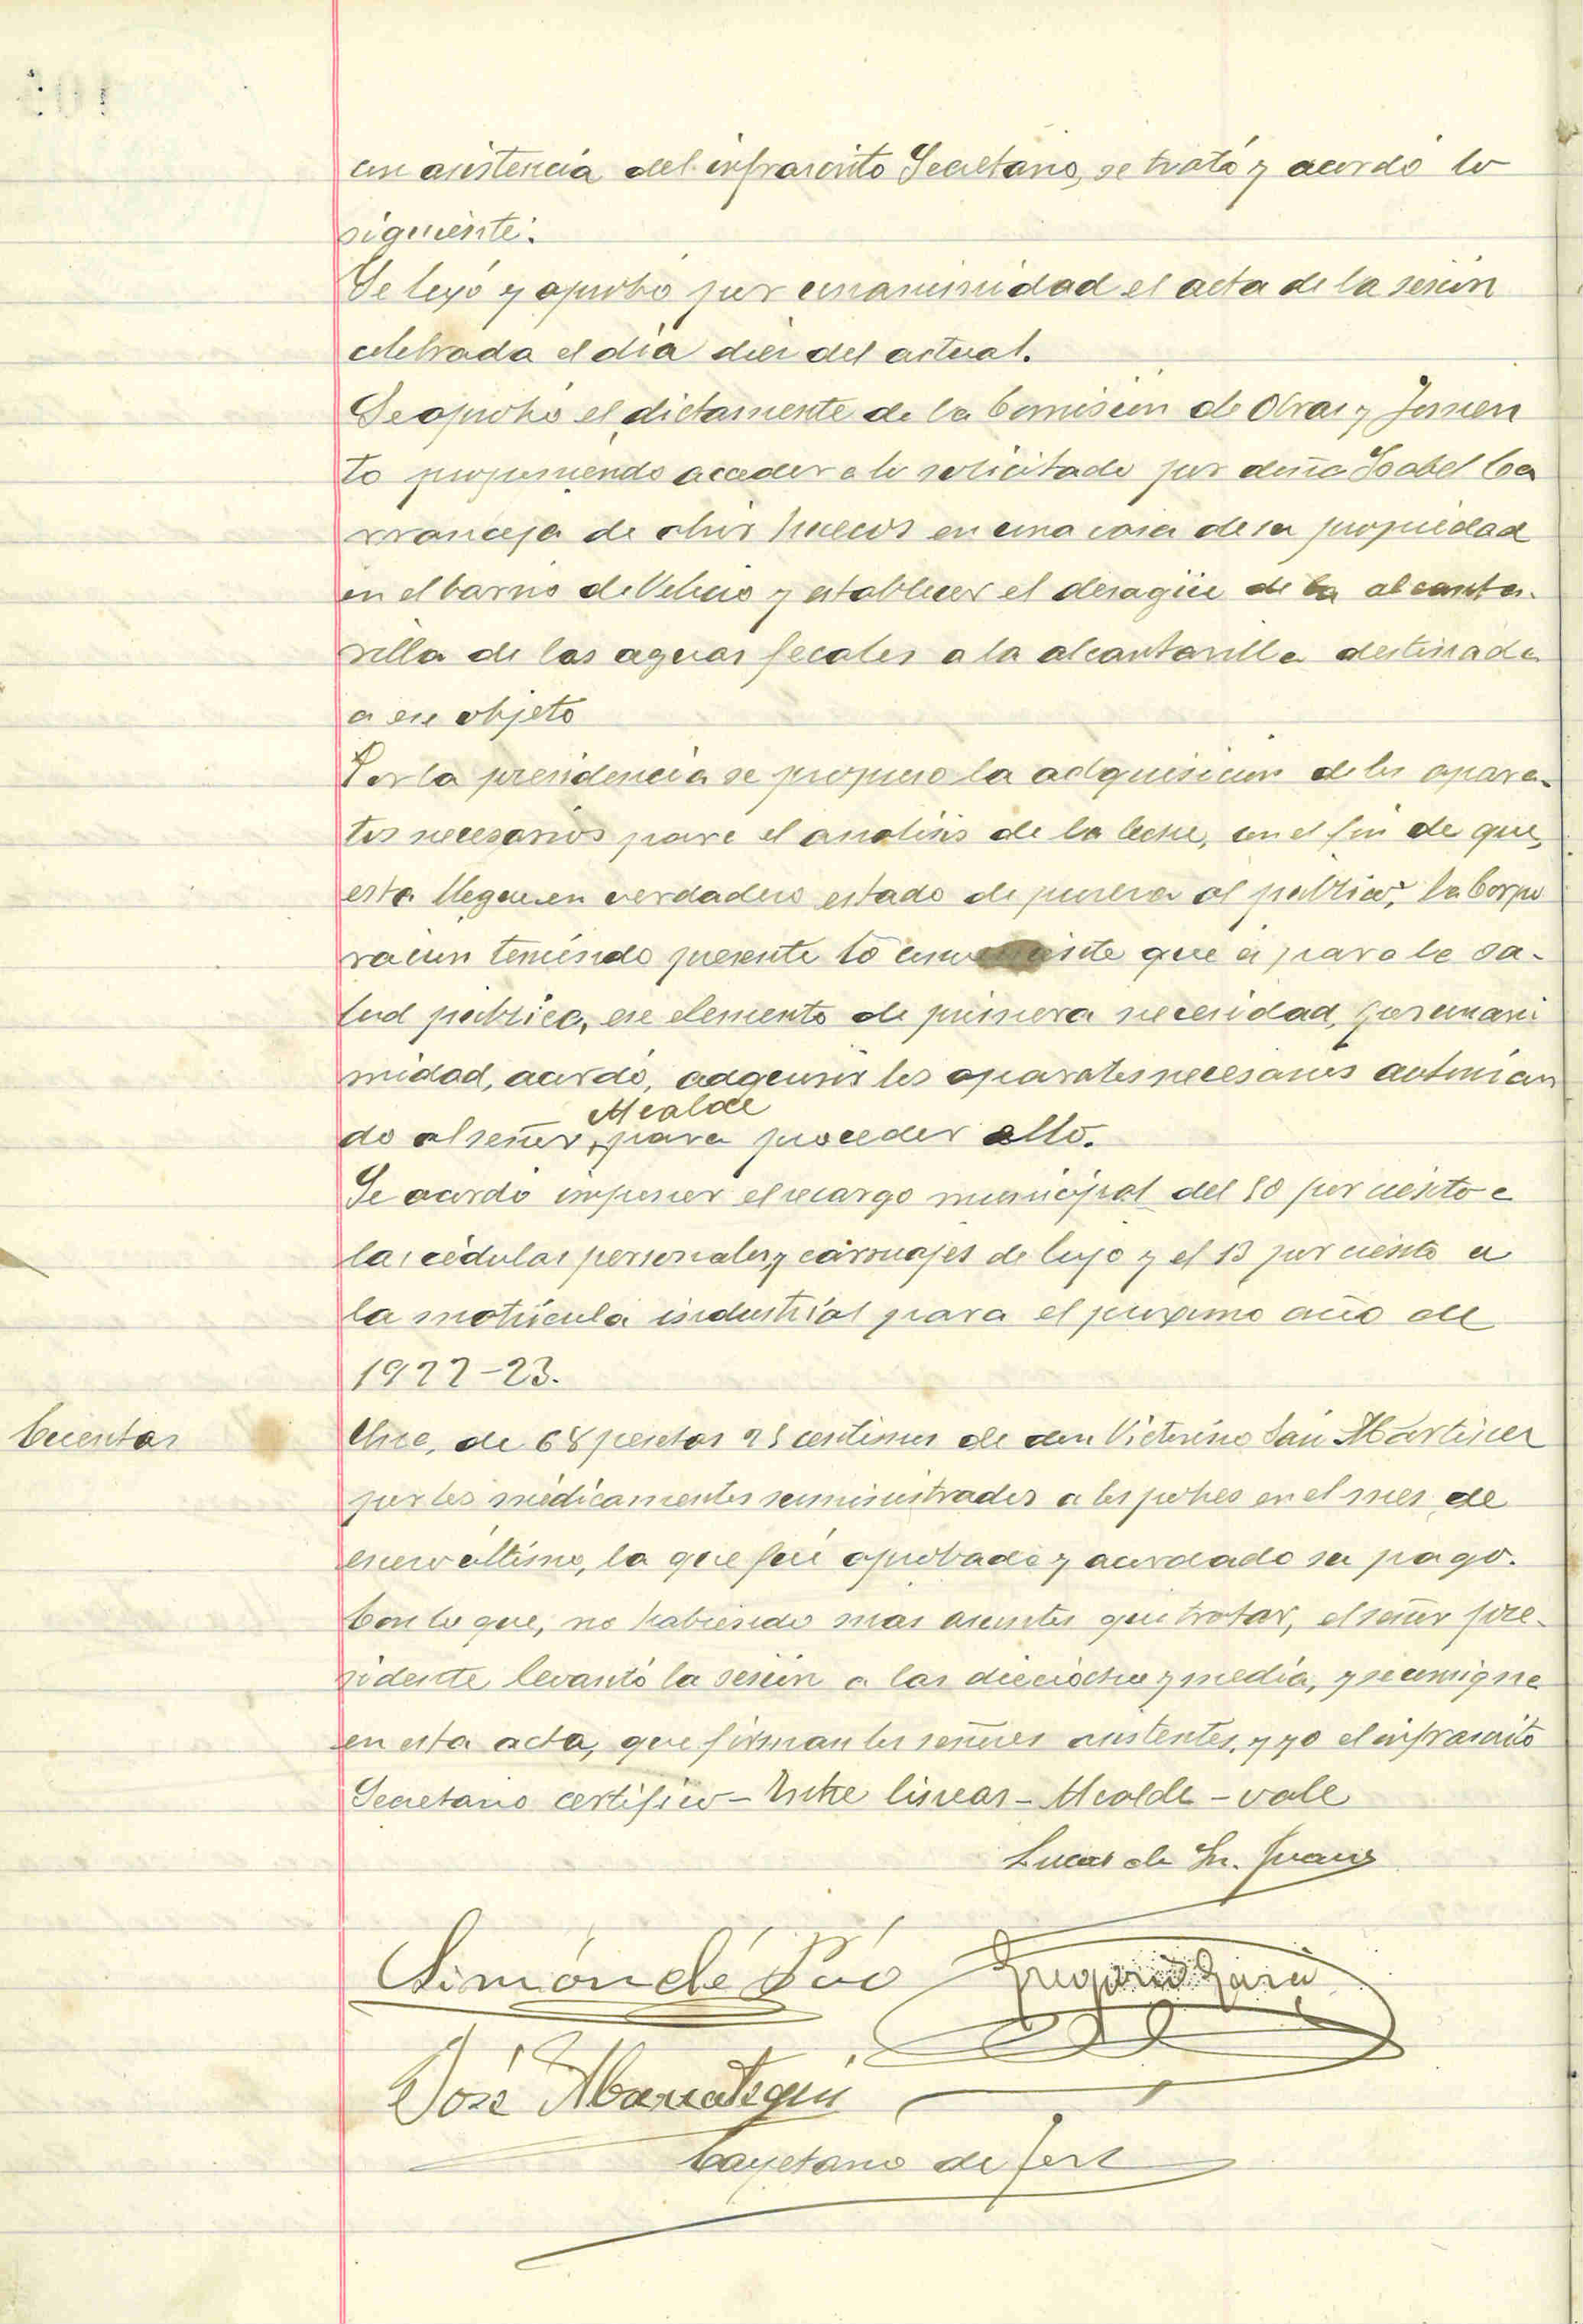 con asistencia del infrascrito Secretario, se trató y acordó lo
siguiente:
Se leyó y aprobó por unanimidad el acta de la sesión
celebrada el día diez del actual.
Se aprobó el dictamente de la Comisión de Obras y Fomen
to proponiendo acceder a lo solicitado por doña Isabel Ca
rranceja de abrir huecos en una casa de su propiedad
en el barrio de Velecio y establecer el desagüe de la alcanta-
rilla de las aguas fecales a la alcantarilla destinada
a ese objeto
Por la presidencia se propuso la adquisición de los apara-
tos necesarios para el analisis de la leche, con el fin de que
esta llegue en verdadero estado de pureza al publico; la Corpo
ración teniendo presente lo que es para la sa-
lud pública, ese elemento de primera necesidad, por unani
midad, acordó, adquirir los aparatos necesarios autorizan
do al señor Alcalde para proceder a ello.
Se acordó imponer el recargo municipal del 50 por ciento a
las cédulas personales y carruajes de lujo y el 13 por ciento a
la matrícula industrial para el proximo año de
1922-23.
Cuentas
Una, de 68 pesetas 25 centimos de don Victorino San Martinez
por los médicamentos suministrados a los pobres en el mes de
enero último, la que fué aprobada y acordado su pago.
Con lo que, no habiendo mas asuntos que tratar, el señor pre-
sidente levantó la sesión a las dieciocho y media, y se consigna
en esta acta, que firman los señores asistentes, y yo el infrascrito
Secretario certifico - Entre lineas - Alcalde - vale
Lucas de Sn. Juan
Simón de Pió Gregorio Garcia
José Abarrategui
Cayetano de